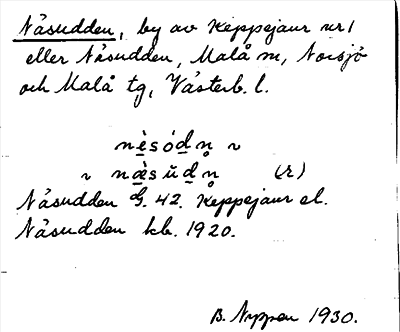 Näsudden, by av Keppejaur nr 1
eller Näsudden, Malå sn, Norsjö
och Malå tg, Västerb. l.
nèsódn̥ ~
~ næ̀sŭdn̥ (r)
Näsudden G. 42. Keppejaur el.
Näsudden kb. 1920.
B. Nyppen 1930.